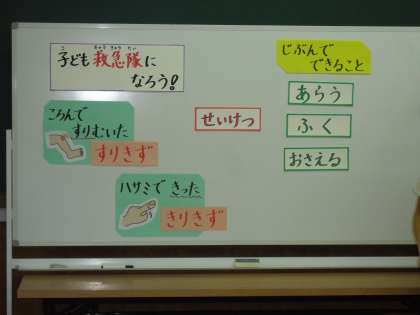 子ども救急隊に
なろう!
こ
きゅうきゅうたい
ころんで
すりむいた
すりきず
ハサミで きった
きりきず
せいけつ
じぶんで
できること
あらう
ふく
おさえる